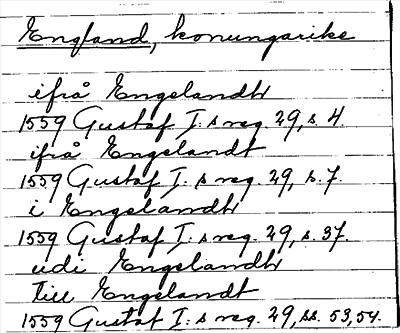 England, konungarike
ifrå Engelandh
1559 Gustaf I:s reg. 29, s. 4.
ifrå Engelandt
1559 Gustaf I:s reg. 29, s. 7.
i Engelandh
1559 Gustaf I:s reg. 29, s. 37.
udi Engelandh
till Engelandt
1559 Gustaf I:s reg. 29, ss. 53, 54.